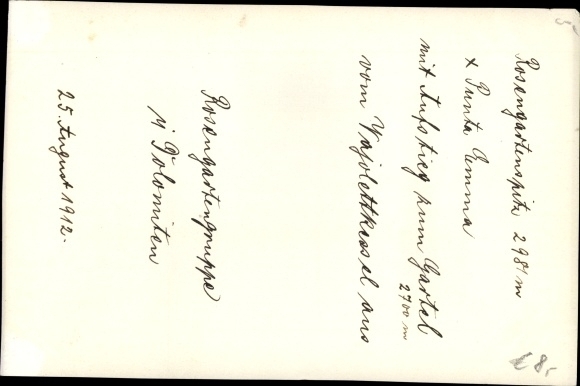 Rosengartenspitz 2981 m
x Punta Emma
mit Aufstieg zum Gartel
2700 m
vom Vajolettkessel aus
Rosengartengruppe
i/ Dolomiten
25. August 1912.
€ 8,-
5-